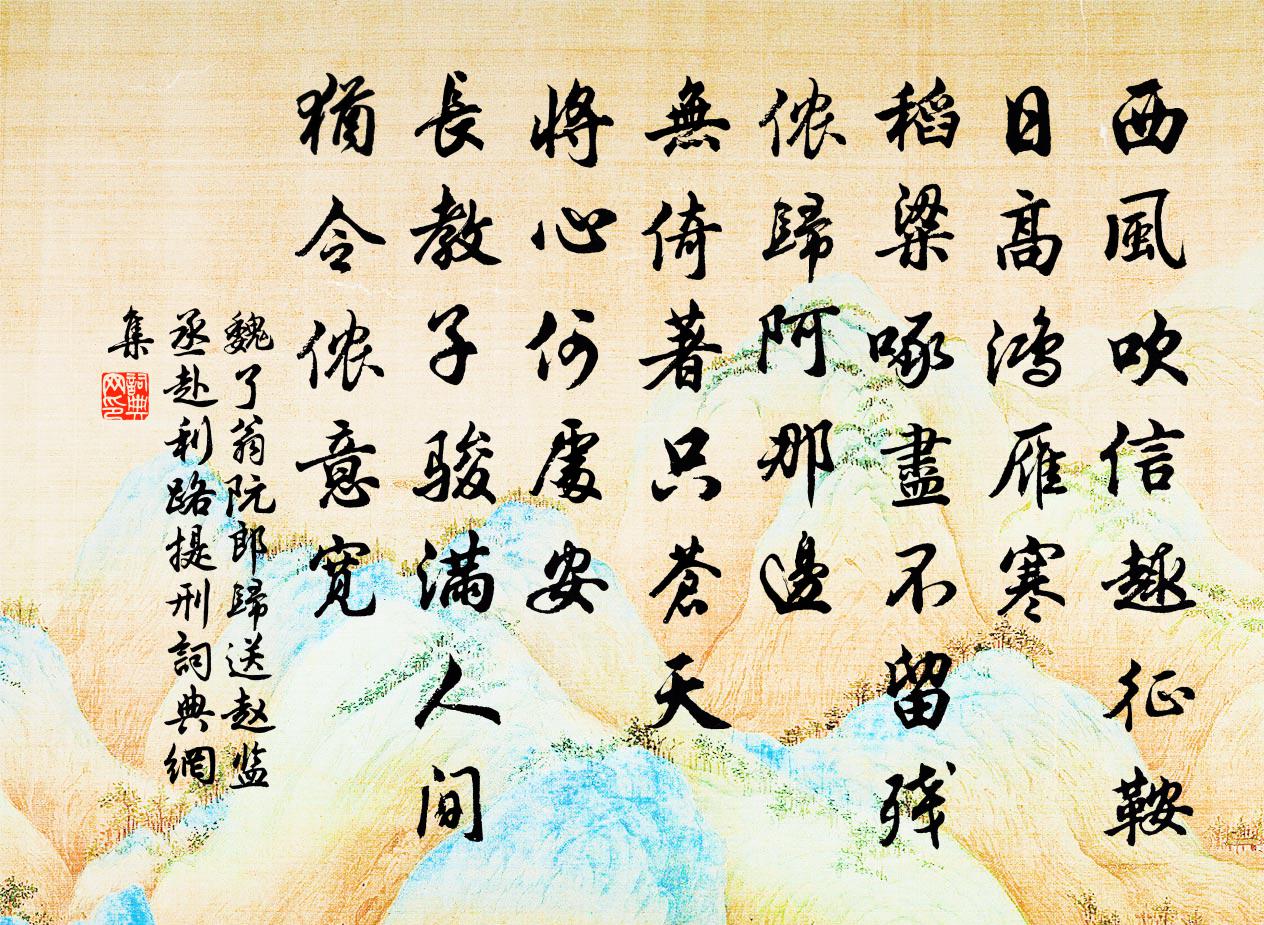 西風吹信趣征鞍
日高鴻雁寒
稻粱啄盡不留残
侬歸阿那邊
無倚著只蒼天
將心何處安
長教子骏滿人间
猶令侬意宽
魏了翁阮郎歸送赵监
丞赴利路提刑詞典網
集
詞典网印